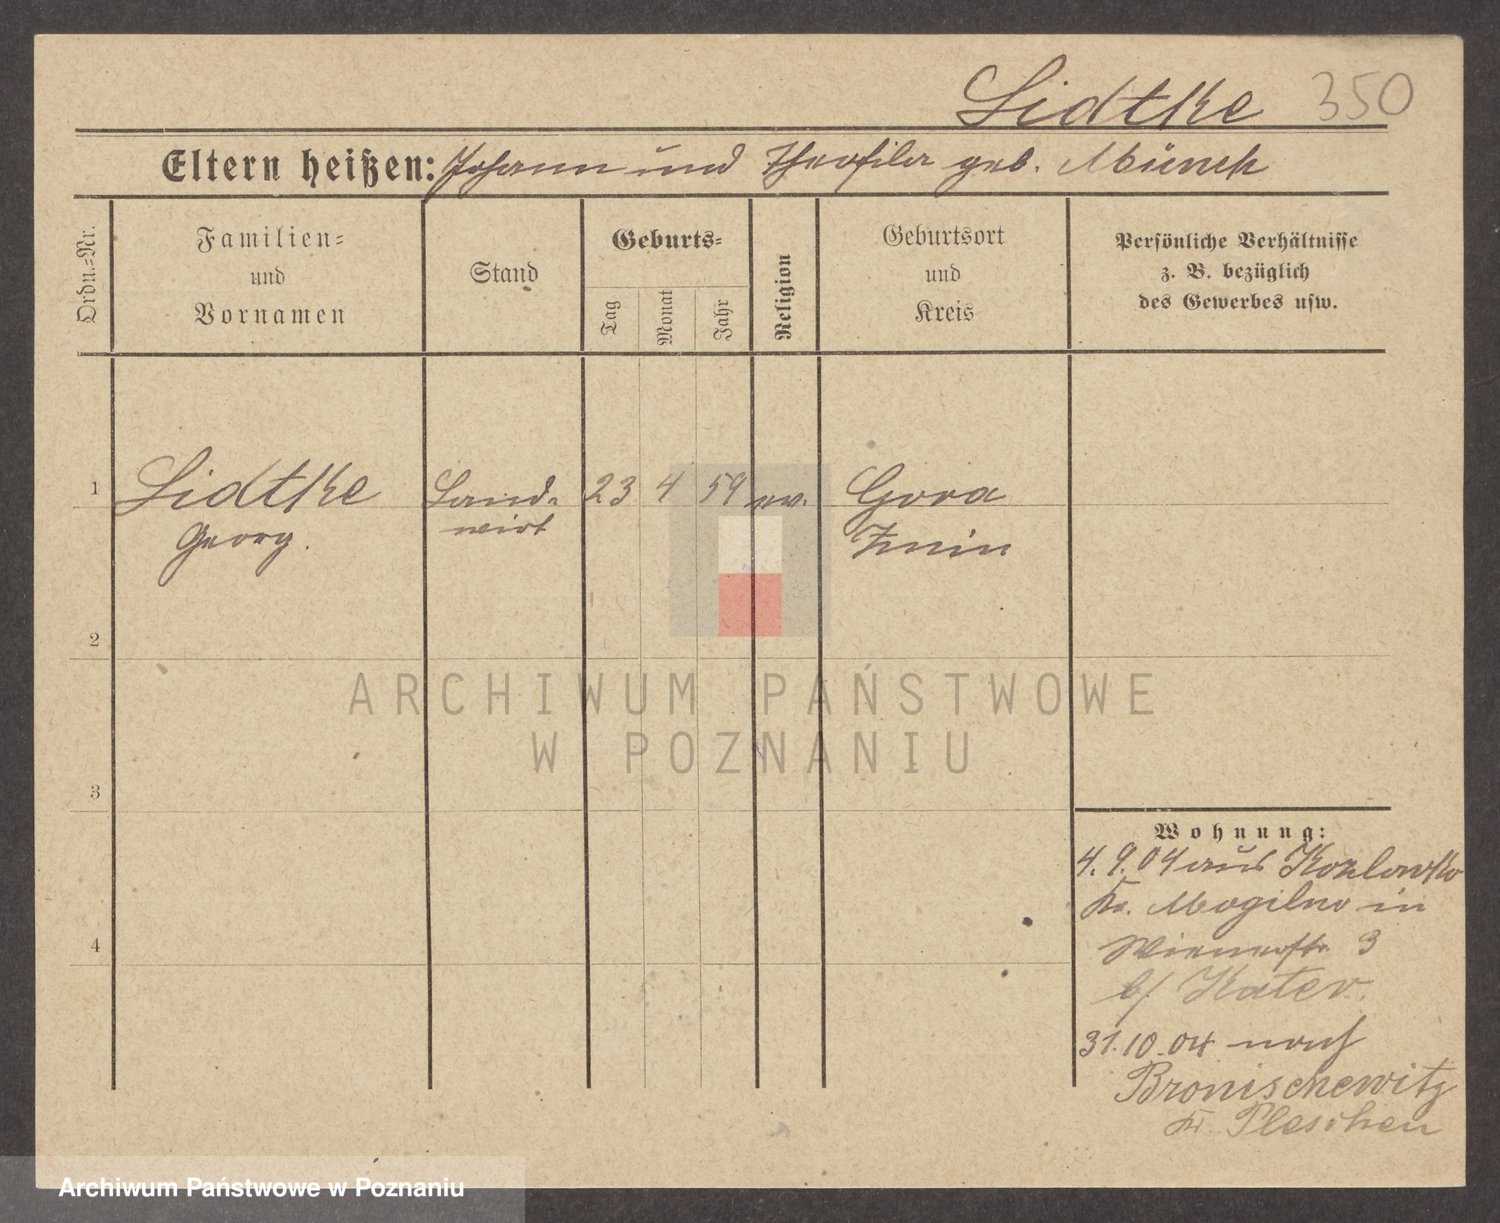 Lidtke 350
Eltern heißen: Johann und Theofila geb. Münch
Ordn.-Nr.
Familien-
und
Vornamen
Stand
Geburts-
Tag
Monat
Jahr
Religion
Geburtsort
und
Kreis
Persönliche Verhältnisse
z. B. bezüglich
des Gewerbes usw.
1 Lidtke Land- 23 4 59 ev. Gora
Georg. wirt Znin
2
ARCHIWUM PAŃSTWOWE
W POZNANIU
3
Wohnung:
4.9.04 aus Kozlowko
Kr. Mogilno in
4
Wienerstr. 3
b/ Kater.
31.10.04 nach
Bronischewitz
Kr. Pleschen
Archiwum Państwowe w Poznaniu